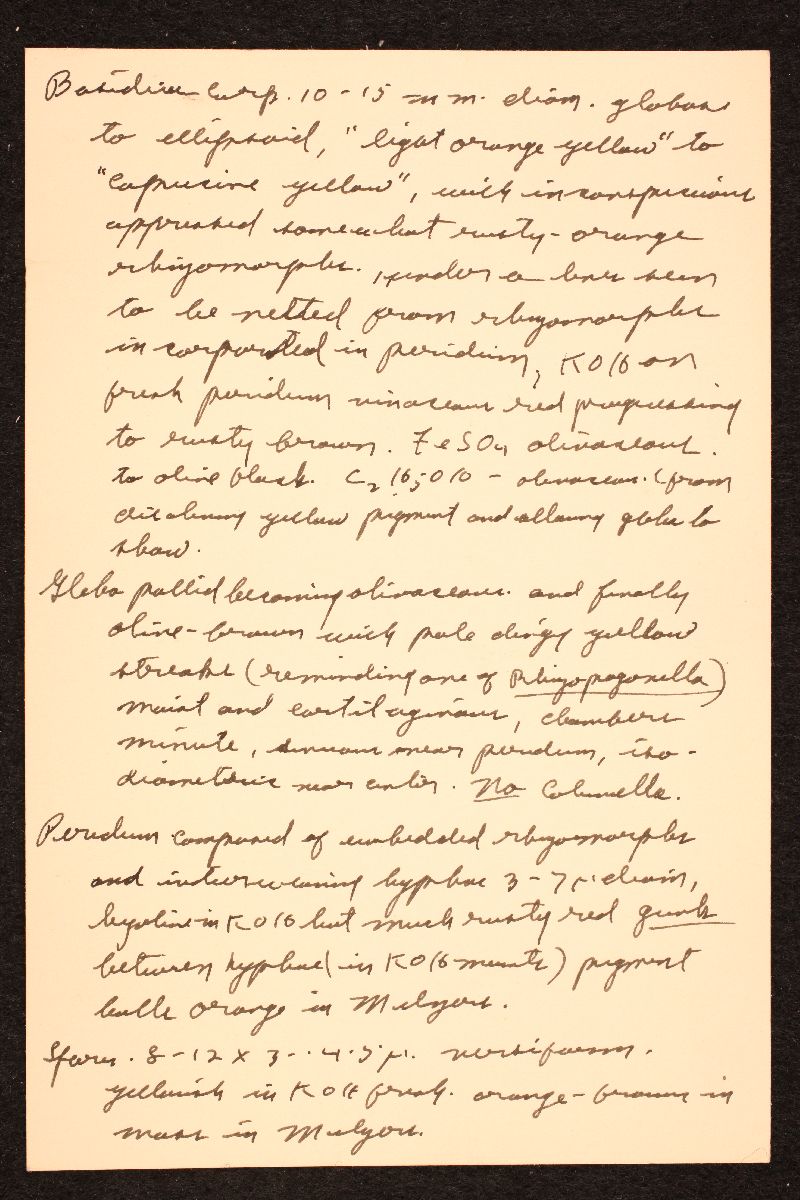 Basidiocarp. 10-15 mm. diam. globose
to ellipsoid, "light orange yellow" to
"capucine yellow", with inconspicuous
appressed somewhat rusty-orange
rhizomorphs. , under a lens seen
to be netted from rhizomorphs
incorporated in peridium, KOH on
fresh peridium vinaceous red progressing
to rusty brown. FeSO4 olivaceous.
to olive black. C2H5OH - olivaceous. (from
dissolving yellow pigment and allowing gleba to
show.
Gleba pallid becoming olivaceous. and finally
olive-brown with pale dingy yellow
streaks (reminding one of Rhizopogonella)
moist and cartilaginous, chambers
minute, sinuous near peridium, iso-
diametric near center. No Columella.
Peridium composed of embedded rhizomorphs
and interweaving hyphae 3-7µ diam,
hyaline in KOH but much rusty red gunk
between hyphae (in KOH mounts) pigment
balls orange in Melzers.
Spores. 8-12 x 3-4.5µ. versiform.
yellowish in KOH fresh. orange-brown in
mass in Melzers.